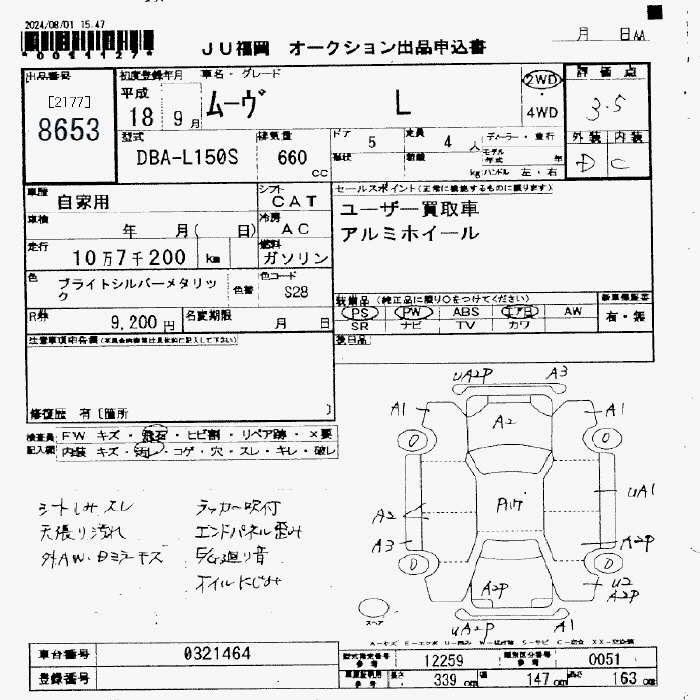 2024/08/01 15.47
JU福岡 オークション出品申込書
月 日 AA
出品番号
[2177]
8653
初度登録年月
平成
18 9 月
車名・グレード
ムーヴ L
2WD
・
4WD
評価点
3.5
外装 内装
D C
型式
DBA-L150S
排気量
660
cc
ドア 5
定員 4 人
ディーラー・並行
モデル年式 年
形状
kg ハンドル 左・右
車歴
自家用
シフト
CAT
車検
年 月( 日)
冷房
AC
走行
10万7千200 km
燃料
ガソリン
色
ブライトシルバーメタリック
色替
色コード
S28
R券
9,200円
名変期限
月 日
セールスポイント(正常に機能するものに限ります)
ユーザー買取車
アルミホイール
装備品(純正品に限り○をつけてください)
PS PW ABS エアB AW
SR ナビ TV カワ
新車保証書
有・無
後日品
注意事項申告欄
修復歴 有〔箇所 〕
検査員
記入欄
FW キズ・飛石・ヒビ割・リペア跡・×要
内装 キズ・汚れ・コゲ・穴・スレ・キレ・破レ
シートしみスレ
天張り汚れ
外AW・Dミラーキズ
ラッカー吹付
エンドパネル歪み
E/G廻り音
オイルにじみ
UA2P A3
A1 A2 A1
A2 A17 UA1
A3 A2P
A2P U2
A2P
UA2P A1
スペア
車台番号
0321464
登録番号
型式指定番号
参考
12259
類別区分番号
参考
0051
車庫証明用
参考
長さ 339 cm
幅 147 cm
高さ 163 cm